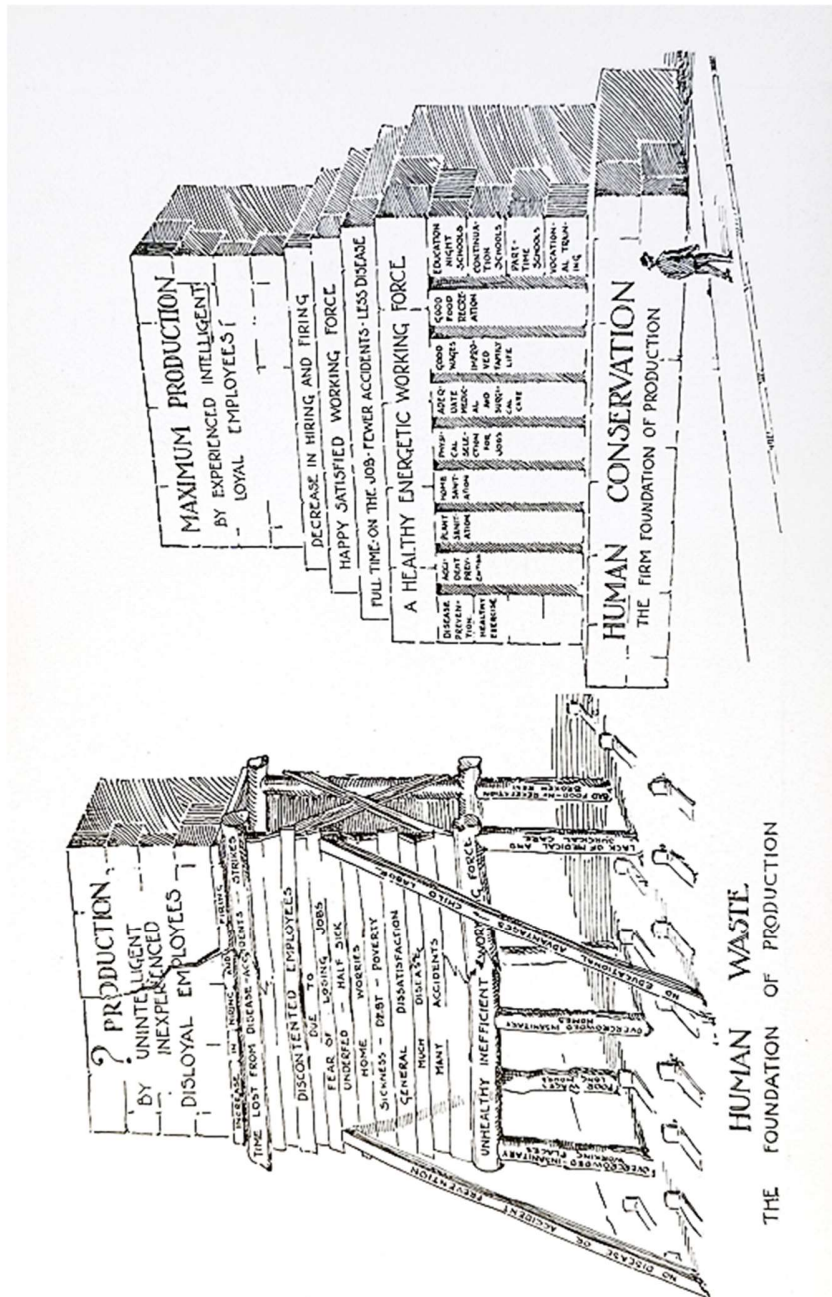 ? PRODUCTION
BY UNINTELLIGENT
INEXPERIENCED
DISLOYAL EMPLOYEES
INCREASE IN HIRING AND FIRING
TIME LOST FROM DISEASE-ACCIDENTS - STRIKES
DISCONTENTED EMPLOYEES
DUE TO
FEAR OF LOSING JOBS
UNDERFED - HALF SICK
HOME WORRIES
SICKNESS - DEBT - POVERTY
GENERAL DISSATISFACTION
MUCH DISEASE
MANY ACCIDENTS
UNHEALTHY INEFFICIENT WORKING FORCE
NO DISEASE OR ACCIDENT PREVENTION
OVERCROWDED-INSANITARY
WORKING PLACES
POOR WAGES
LONG HOURS
OVERCROWDED INSANITARY
HOMES
NO EDUCATIONAL ADVANTAGES - CHILD LABOR
LACK OF MEDICAL AND
SURGICAL CARE
BAD FOOD-NO RECREATION
BROKEN REST
HUMAN WASTE
THE FOUNDATION OF PRODUCTION
MAXIMUM PRODUCTION
BY EXPERIENCED INTELLIGENT
LOYAL EMPLOYEES
DECREASE IN HIRING AND FIRING
HAPPY SATISFIED WORKING FORCE
FULL TIME-ON THE JOB-FEWER ACCIDENTS-LESS DISEASE
A HEALTHY ENERGETIC WORKING FORCE
DISEASE
PREVEN-
TION
HEALTHY
EXERCISE
ACCI-
DENT
PREV-
ENTION
PLANT
SANIT-
ATION
HOME
SANIT-
ATION
PHYSI-
CAL
SELE-
CTION
FOR
JOBS
ADEQ-
UATE
MEDIC-
AL
AND
SURGI-
CAL
CARE
GOOD
WAGES
IMPRO-
VED
FAMILY
LIFE
GOOD
FOOD
RECRE-
ATION
EDUCATION
NIGHT
SCHOOLS
CONTINUA-
TION
SCHOOLS
PART-
TIME
SCHOOLS
VOCATION-
AL TRAIN-
ING
HUMAN CONSERVATION
THE FIRM FOUNDATION OF PRODUCTION